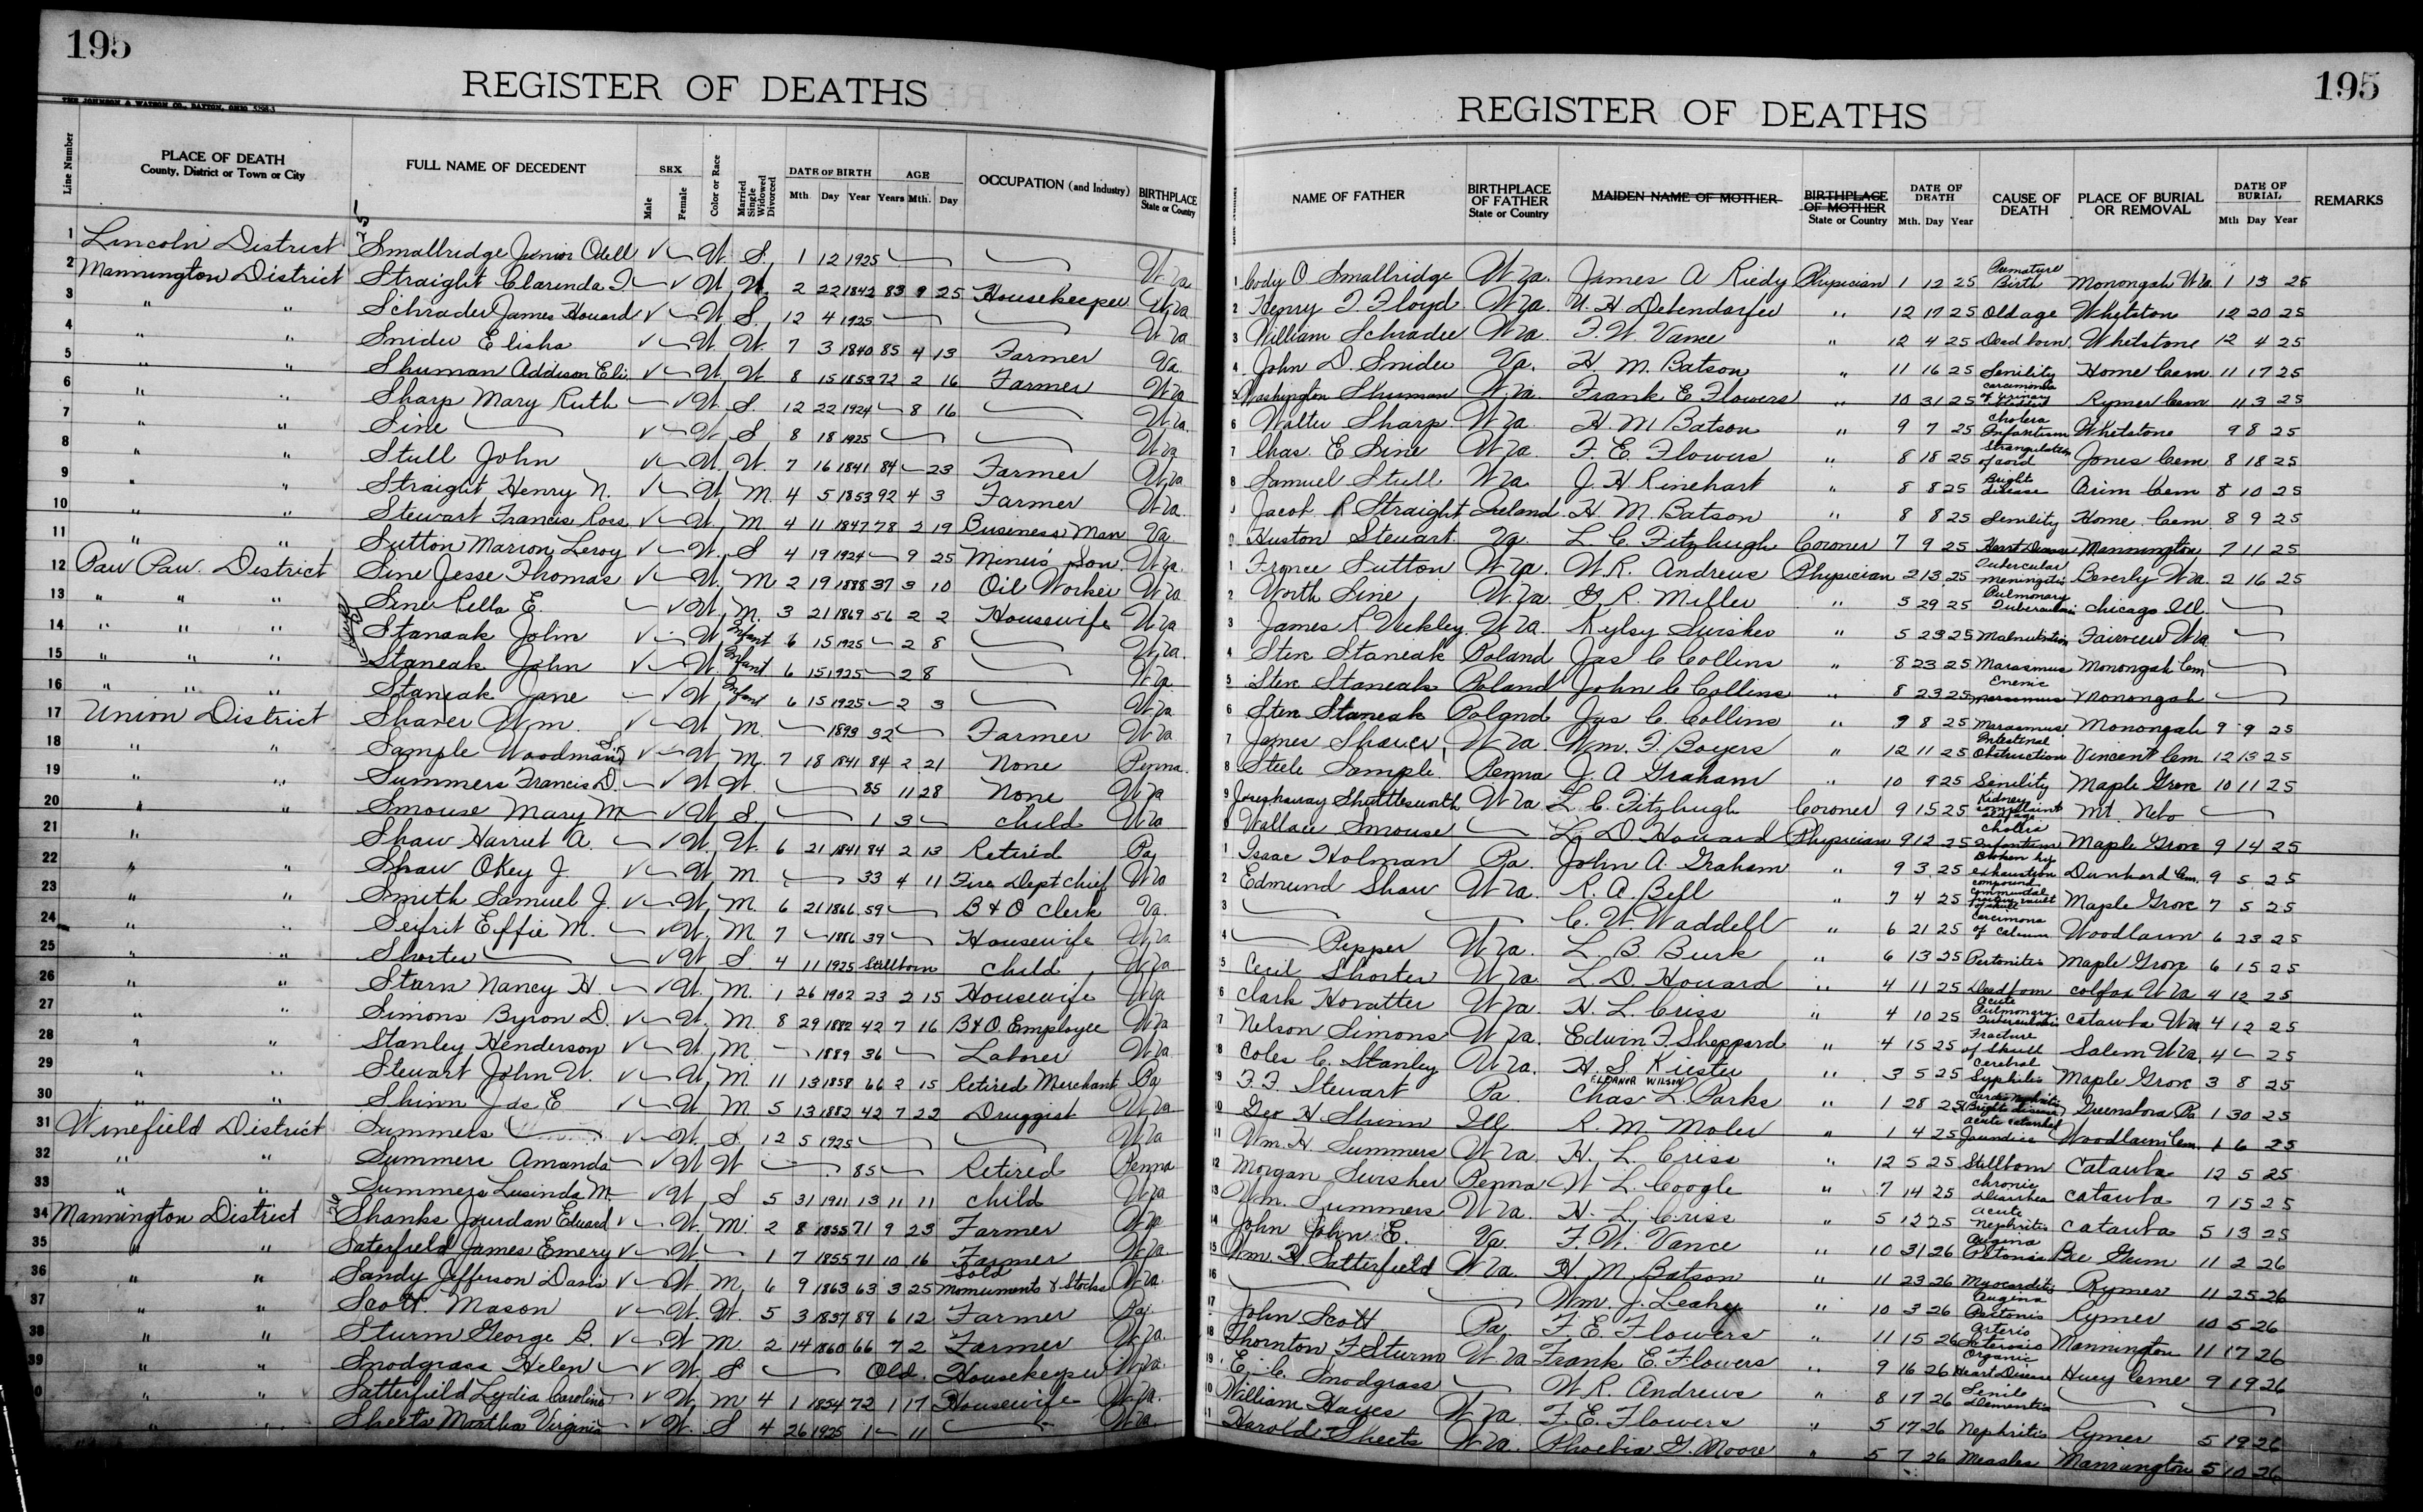 195
REGISTER OF DEATHS
THE JOHNSON & WATSON CO., DAYTON, OHIO
Line Number | PLACE OF DEATH County, District or Town or City | FULL NAME OF DECEDENT | SEX Male Female | Color or Race | Married Single Widowed Divorced | DATE OF BIRTH Mth. Day Year | AGE Years Mth. Day | OCCUPATION (and Industry) | BIRTHPLACE State or Country
25
1 Lincoln District Smallridge Junior Odell ✓ — W. S. 1 12 1925 — — W Va
2 Mannington District Straight Clarinda I. — ✓ W W. 2 22 1842 83 9 25 Housekeeper W Va
3 " " Schrader James Howard ✓ — W S. 12 4 1925 — — W Va
4 " " Snider Elisha ✓ — W W. 7 3 1840 85 4 13 Farmer Va
5 " " Shuman Addison Eli ✓ — W W 8 15 1853 72 2 16 Farmer W Va
6 " " Sharp Mary Ruth — ✓ W. S. 12 22 1924 — 8 16 — W Va.
7 " " Sine — ✓ — W S 8 18 1925 — — W Va
8 " " Stull John ✓ — W. W. 7 16 1841 84 — 23 Farmer W Va
9 " " Straight Henry N. ✓ — W. M. 4 5 1853 92 4 3 Farmer W Va
10 " " Stewart Francis Ross ✓ — W. M 4 11 1847 78 2 19 Business Man Va
11 " " Sutton Marion Leroy ✓ — W. S 4 19 1924 — 9 25 Miner's Son. W Va.
12 Paw Paw District Sine Jesse Thomas ✓ — W. M 2 19 1888 37 3 10 Oil Worker W Va
13 " " " Sine Rella E. — ✓ W. M. 3 21 1869 56 2 2 Housewife W Va
14 " " " Staneak John ✓ — W Infant 6 15 1925 — 2 8 — W Va.
15 " " " Staneak John ✓ — W. Infant 6 15 1925 — 2 8 — W Va.
16 " " " Staneak Jane — ✓ W Infant 6 15 1925 — 2 3 — W Va
17 Union District Shaver Wm. ✓ — W. M. — 1893 32 — Farmer W Va
18 " " Sample Woodman Sr ✓ — W M. 7 18 1841 84 2 21 None Penna.
19 " " Summers Francis D. — ✓ W W. — 85 11 28 None W Va
20 " " Smouse Mary M — ✓ W S. — 1 3 — Child W Va
21 " Shaw Harriet A. — ✓ W. W. 6 21 1841 84 2 13 Retired Pa
22 " " Shaw Okey J. ✓ — W M. — 33 4 11 Fire Dept Chief W Va
23 " " Smith Samuel J. ✓ — W. M. 6 21 1866 59 — B & O Clerk Va.
24 " " Seifrit Effie M. — ✓ W. M. 7 — 1886 39 — Housewife W Va
25 " " Shorter — — ✓ W. S. 4 11 1925 Stillborn Child W Va
26 " " Starn Nancy H. — ✓ W. M. 1 26 1902 23 2 15 Housewife W Va
27 " " Simons Byron D. ✓ — W. M. 8 29 1882 42 7 16 B & O. Employee W Va
28 " " Stanley Henderson ✓ — W. M. — 1889 36 — Laborer W Va
29 " " Stewart John W. ✓ — W. M 11 13 1858 66 2 15 Retired Merchant Pa
30 " " Shinn Jas E ✓ — W M 5 13 1882 42 7 22 Druggist W Va
31 Winefield District Summers — ✓ — W. S. 12 5 1925 — — W Va
32 " " Summers Amanda — ✓ W W — 85 — Retired Penna
33 " " Summers Lusinda M. — ✓ W. S 5 31 1911 13 11 11 Child W Va
26
34 Mannington District Shanks Jourdan Edward ✓ — W. M. 2 8 1855 71 9 23 Farmer W Va
35 " " Saterfield James Emery ✓ — W — 1 7 1855 71 10 16 Farmer W Va.
36 " " Sandy Jefferson Davis ✓ — W. M. 6 9 1863 63 3 25 Sold Monuments & Stocks W Va.
37 " " Scott Mason ✓ — W. W. 5 3 1837 89 6 12 Farmer Pa.
38 " " Sturm George B. ✓ — W M. 2 14 1860 66 7 2 Farmer W Va.
39 " " Snodgrass Helen — ✓ W S — Old. Housekeeper W Va.
0 " " Satterfield Lydia Caroline — ✓ W M 4 1 1854 72 1 17 Housewife W Va.
" " Sheets Martha Virginia — ✓ W. S 4 26 1925 1 — 11 — W Va
195
REGISTER OF DEATHS
NAME OF FATHER | BIRTHPLACE OF FATHER State or Country | MAIDEN NAME OF MOTHER | BIRTHPLACE OF MOTHER State or Country | DATE OF DEATH Mth. Day Year | CAUSE OF DEATH | PLACE OF BURIAL OR REMOVAL | DATE OF BURIAL Mth Day Year | REMARKS
1 Cody O Smallridge W Va. James A Riedy Physician 1 12 25 Premature Birth Monongah W Va. 1 13 25
2 Henry T Floyd W Va. U. H Debendarfer " 12 17 25 Old age Whetstone 12 20 25
3 William Schrader W Va. F. W. Vance " 12 4 25 Dead born Whetstone 12 4 25
4 John D. Snider Va. H. M. Batson " 11 16 25 Senility Home Cem. 11 17 25
5 Washington Shuman W Va. Frank E Flowers " 10 31 25 carcinoma of urinary bladder Rymer Cem 11 3 25
6 Walter Sharp W Va. H. M Batson " 9 7 25 Cholera Infantum Whetstone 9 8 25
7 Chas. E Sine W Va. F. E. Flowers " 8 18 25 Strangulation of cord Jones Cem 8 18 25
8 Samuel Stull W Va. J. H. Rinehart " 8 8 25 Brights disease Brim Cem 8 10 25
Jacob R Straight Ireland. H. M. Batson " 8 8 25 Senility Home Cem 8 9 25
0 Huston Stewart Va. L C. Fitzhugh Coroner 7 9 25 Heart Disease Mannington 7 11 25
1 France Sutton W Va. W. R. Andrews Physician 2 13 25 Tubercular meningitis Beverly W Va. 2 16 25
2 Worth Sine W Va G R. Miller " 5 29 25 Pulmonary Tuberculosis Chicago Ill. —
3 James R Veckley W Va. Kylsy Swisher " 5 23 25 Malnutrition Fairview W Va —
4 Steve Staneak Poland Jas C Collins " 8 23 25 Marasmus Monongah Cem —
5 Steve Staneak Poland John C Collins " 8 23 25 marasmus Monongah —
6 Steve Staneak Poland Jas C. Collins " 9 8 25 Marasmus Monongah 9 9 25
7 James Shaver W Va. Wm. F. Boyers " 12 11 25 Intestinal Obstruction Vincent Cem. 12 13 25
8 Steele Sample Penna J. A Graham " 10 9 25 Senility Maple Grove 10 11 25
9 Shuttlesworth W Va L. C. Fitzhugh Coroner 9 15 25 Kidney complaint Mt. Nebo —
0 Wallace Smouse — L. D. Howard Physician 9 12 25 Cholera Infantum Maple Grove 9 14 25
1 Isaac Holman Pa. John A. Graham " 9 3 25 exhaustion Dunkard Cem. 9 5 25
2 Edmund Shaw W Va. R. A. Bell " 7 4 25 compound of skull Maple Grove 7 5 25
3 — — C. W. Waddell " 6 21 25 carcinoma of Woodlawn 6 23 25
4 — Pepper W Va. L. B. Burk " 6 13 25 Peritonitis Maple Grove 6 15 25
5 Cecil Shorter W Va. L D. Howard " 4 11 25 Deadborn Colfax W Va 4 12 25
6 Clark Hovatter W Va. H. L. Criss " 4 10 25 Acute Pulmonary Tuberculosis Catawba W Va 4 12 25
7 Nelson Simons W Va. Edwin F. Sheppard " 4 15 25 Fracture of Skull Salem W Va. 4 — 25
8 Coles C. Stanley W Va. H. S. Kiester " 3 5 25 Cerebral Syphilis Maple Grove 3 8 25
ELEANOR WILSON
9 F. F. Stewart Pa. Chas L. Parks " 1 28 25 Nephritis (Brights disease) Greensboro Pa 1 30 25
0 Geo H. Shinn Ill. R. M Moler " 1 4 25 acute catarrhal Jaundice Woodlawn Cem. 1 6 25
11 Wm. H. Summers W Va. H. L. Criss " 12 5 25 Stillborn Catawba 12 5 25
12 Morgan Swisher Penna W. L. Coogle " 7 14 25 Chronic Diarrhea Catawba 7 15 25
13 Wm. Summers W Va. H. L. Criss " 5 12 25 Acute Nephritis Catawba 5 13 25
14 John John E. Va. F. W. Vance " 10 31 26 Angina Pectoris Bee Gum 11 2 26
15 Wm. H Satterfield W Va. H. M Batson " 11 23 26 Myocarditis Rymer 11 25 26
16 — — Wm. J. Leahy " 10 3 26 Angina Pectoris Rymer 10 5 26
17 John Scott Pa. F. E. Flowers " 11 15 26 Arterio Mannington 11 17 26
18 Thornton F Sturm W Va Frank E. Flowers " 9 16 26 Organic Heart Disease Huey Cme 9 19 26
19 E. C. Snodgrass — W. R. Andrews " 8 17 26 Senile Dementia — —
William Hayes W Va. F. E. Flowers " 5 17 26 Nephritis Rymer 5 19 26
Harold Sheets W Va. Phoebia G. Moore " 5 7 26 Measles Mannington 5 10 26